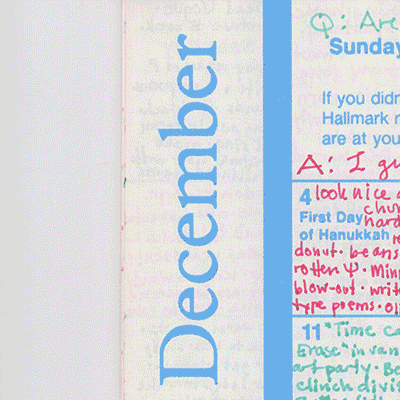 December
Q: Are
Sunday
If you didn
Hallmark r
are at you
A: I gu
4 look nice
First Day
of Hanukkah
donut. beans
rotten Ψ. Min
blow-out. writ
type poems. Oli
11 "Time ca
Erase" in van
art party. Be
clinch divi